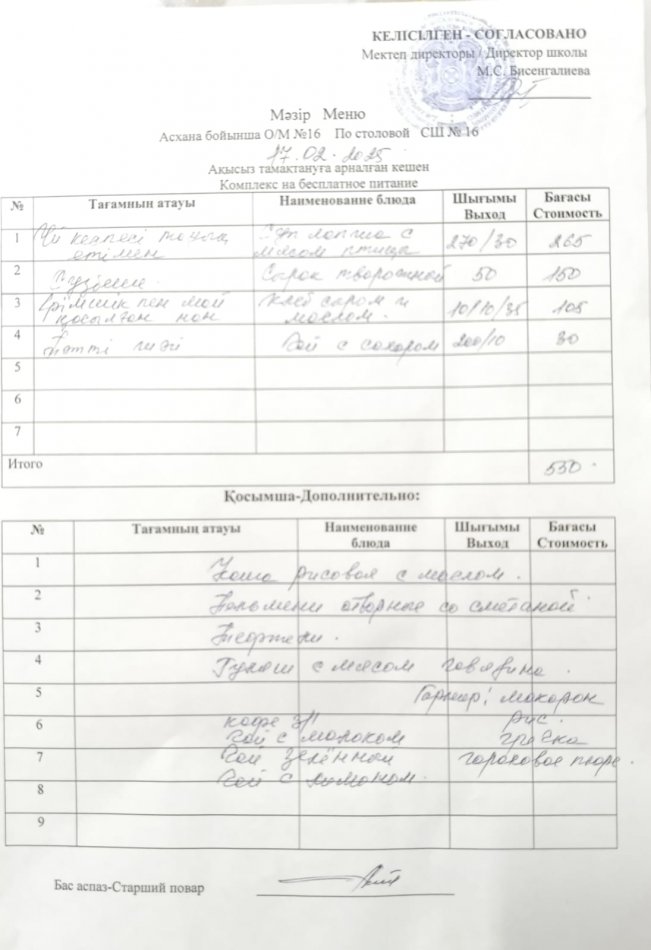 КЕЛІСІЛГЕН - СОГЛАСОВАНО
Мектеп директоры / Директор школы
М.С. Бисенгалиева
Мәзір Меню
Асхана бойынша О/М №16 По столовой СШ № 16
17.02.2025
Ақысыз тамақтануға арналған кешен
Комплекс на бесплатное питание
№ Тағамның атауы Наименование блюда Шығымы Выход Бағасы Стоимость
1 Үй кеспесі тауық етімен Суп лапша с мясом птица 270/30 265
2 Сүзбеше. Сырок творожной 50 150
3 Ірімшік пен май қосылған нан хлеб сыром и маслом. 10/10/35 105
4 Тәтті шәй Чай с сахаром 200/10 30
5
6
7
Итого 550
Қосымша-Дополнительно:
№ Тағамның атауы Наименование блюда Шығымы Выход Бағасы Стоимость
1 Каша рисовая с маслом.
2 Пельмени отворные со сметаной
3
4 Гуляш с мясом говядина.
5 Гарнир: макарон
6 кофе 3/1 рис.
Чай с молоком гречка
7 Чай зелённой гороховое пюре.
Чай с лимоном.
8
9
Бас аспаз-Старший повар